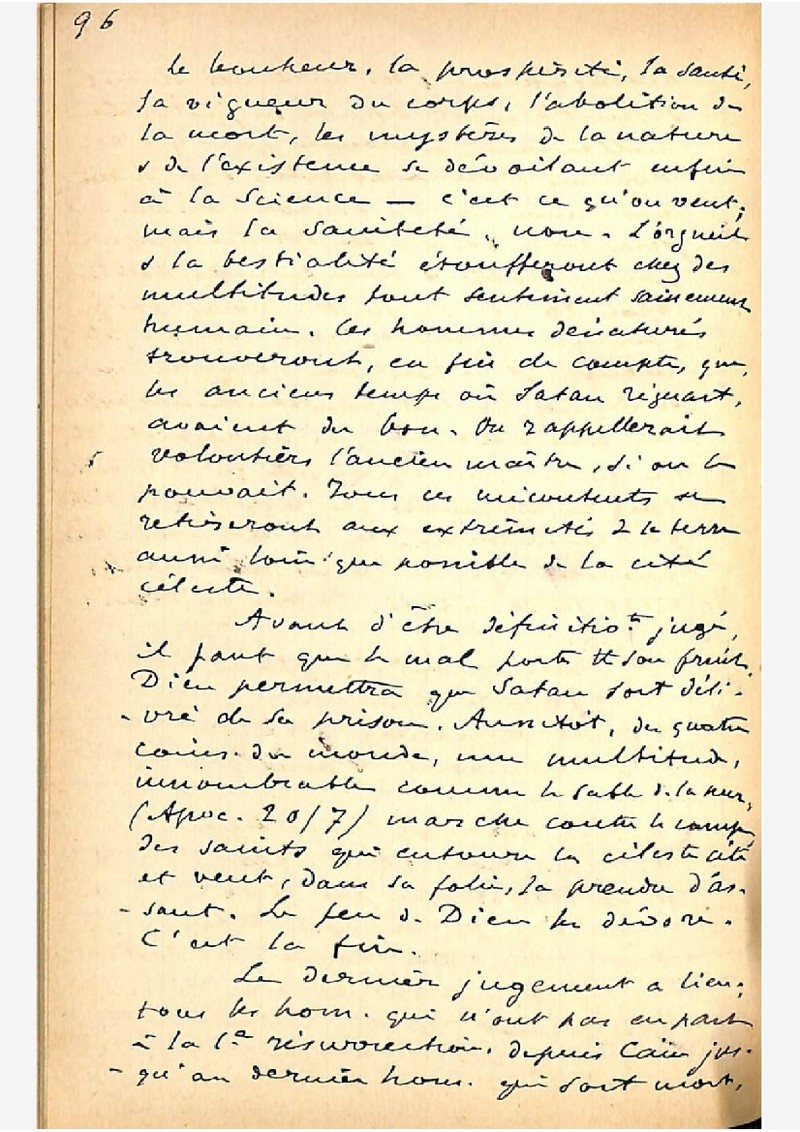 96
Le bonheur, la prospérité, la santé,
la vigueur du corps, l'abolition de
la mort, les mystères de la nature
& de l'existence se dévoilant enfin
à la Science — c'est ce qu'on veut;
mais la sainteté, non. L'orgueil
& la bestialité étoufferont chez des
multitudes tout sentiment sainement
humain. Ces hommes dénaturés
trouveront, en fin de compte, que
les anciens temps où Satan régnait,
avaient du bon. On rappellerait
volontiers l'ancien maître, si on le
pouvait. Tous ces mécontents se
retireront aux extrémités de la terre
aussi loin que possible de la cité
céleste.
Avant d'être définitiot jugé,
il faut que le mal porte tt son fruit.
Dieu permettra que Satan soit déli-
-vré de sa prison. Aussitôt, des quatre
coins du monde, une multitude,
innombrable comme le sable de la mer,
(Apoc. 20/7) marche contre le camp
des saints qui entoure la céleste cité
et veut, dans sa folie, la prendre d'as-
-saut. Le feu de Dieu les dévore.
C'est la fin.
Le dernier jugement a lieu;
tous les hom. qui n'ont pas eu part
à la 1re résurrection, depuis Caïn jus-
-qu'au dernier hom. qui soit mort,